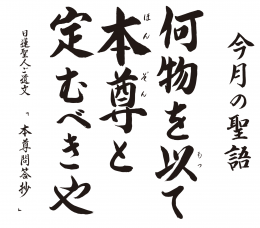 今月の聖語
何物を以て
本尊と
定むべきや
日蓮聖人ご遺文
「本尊問答抄」